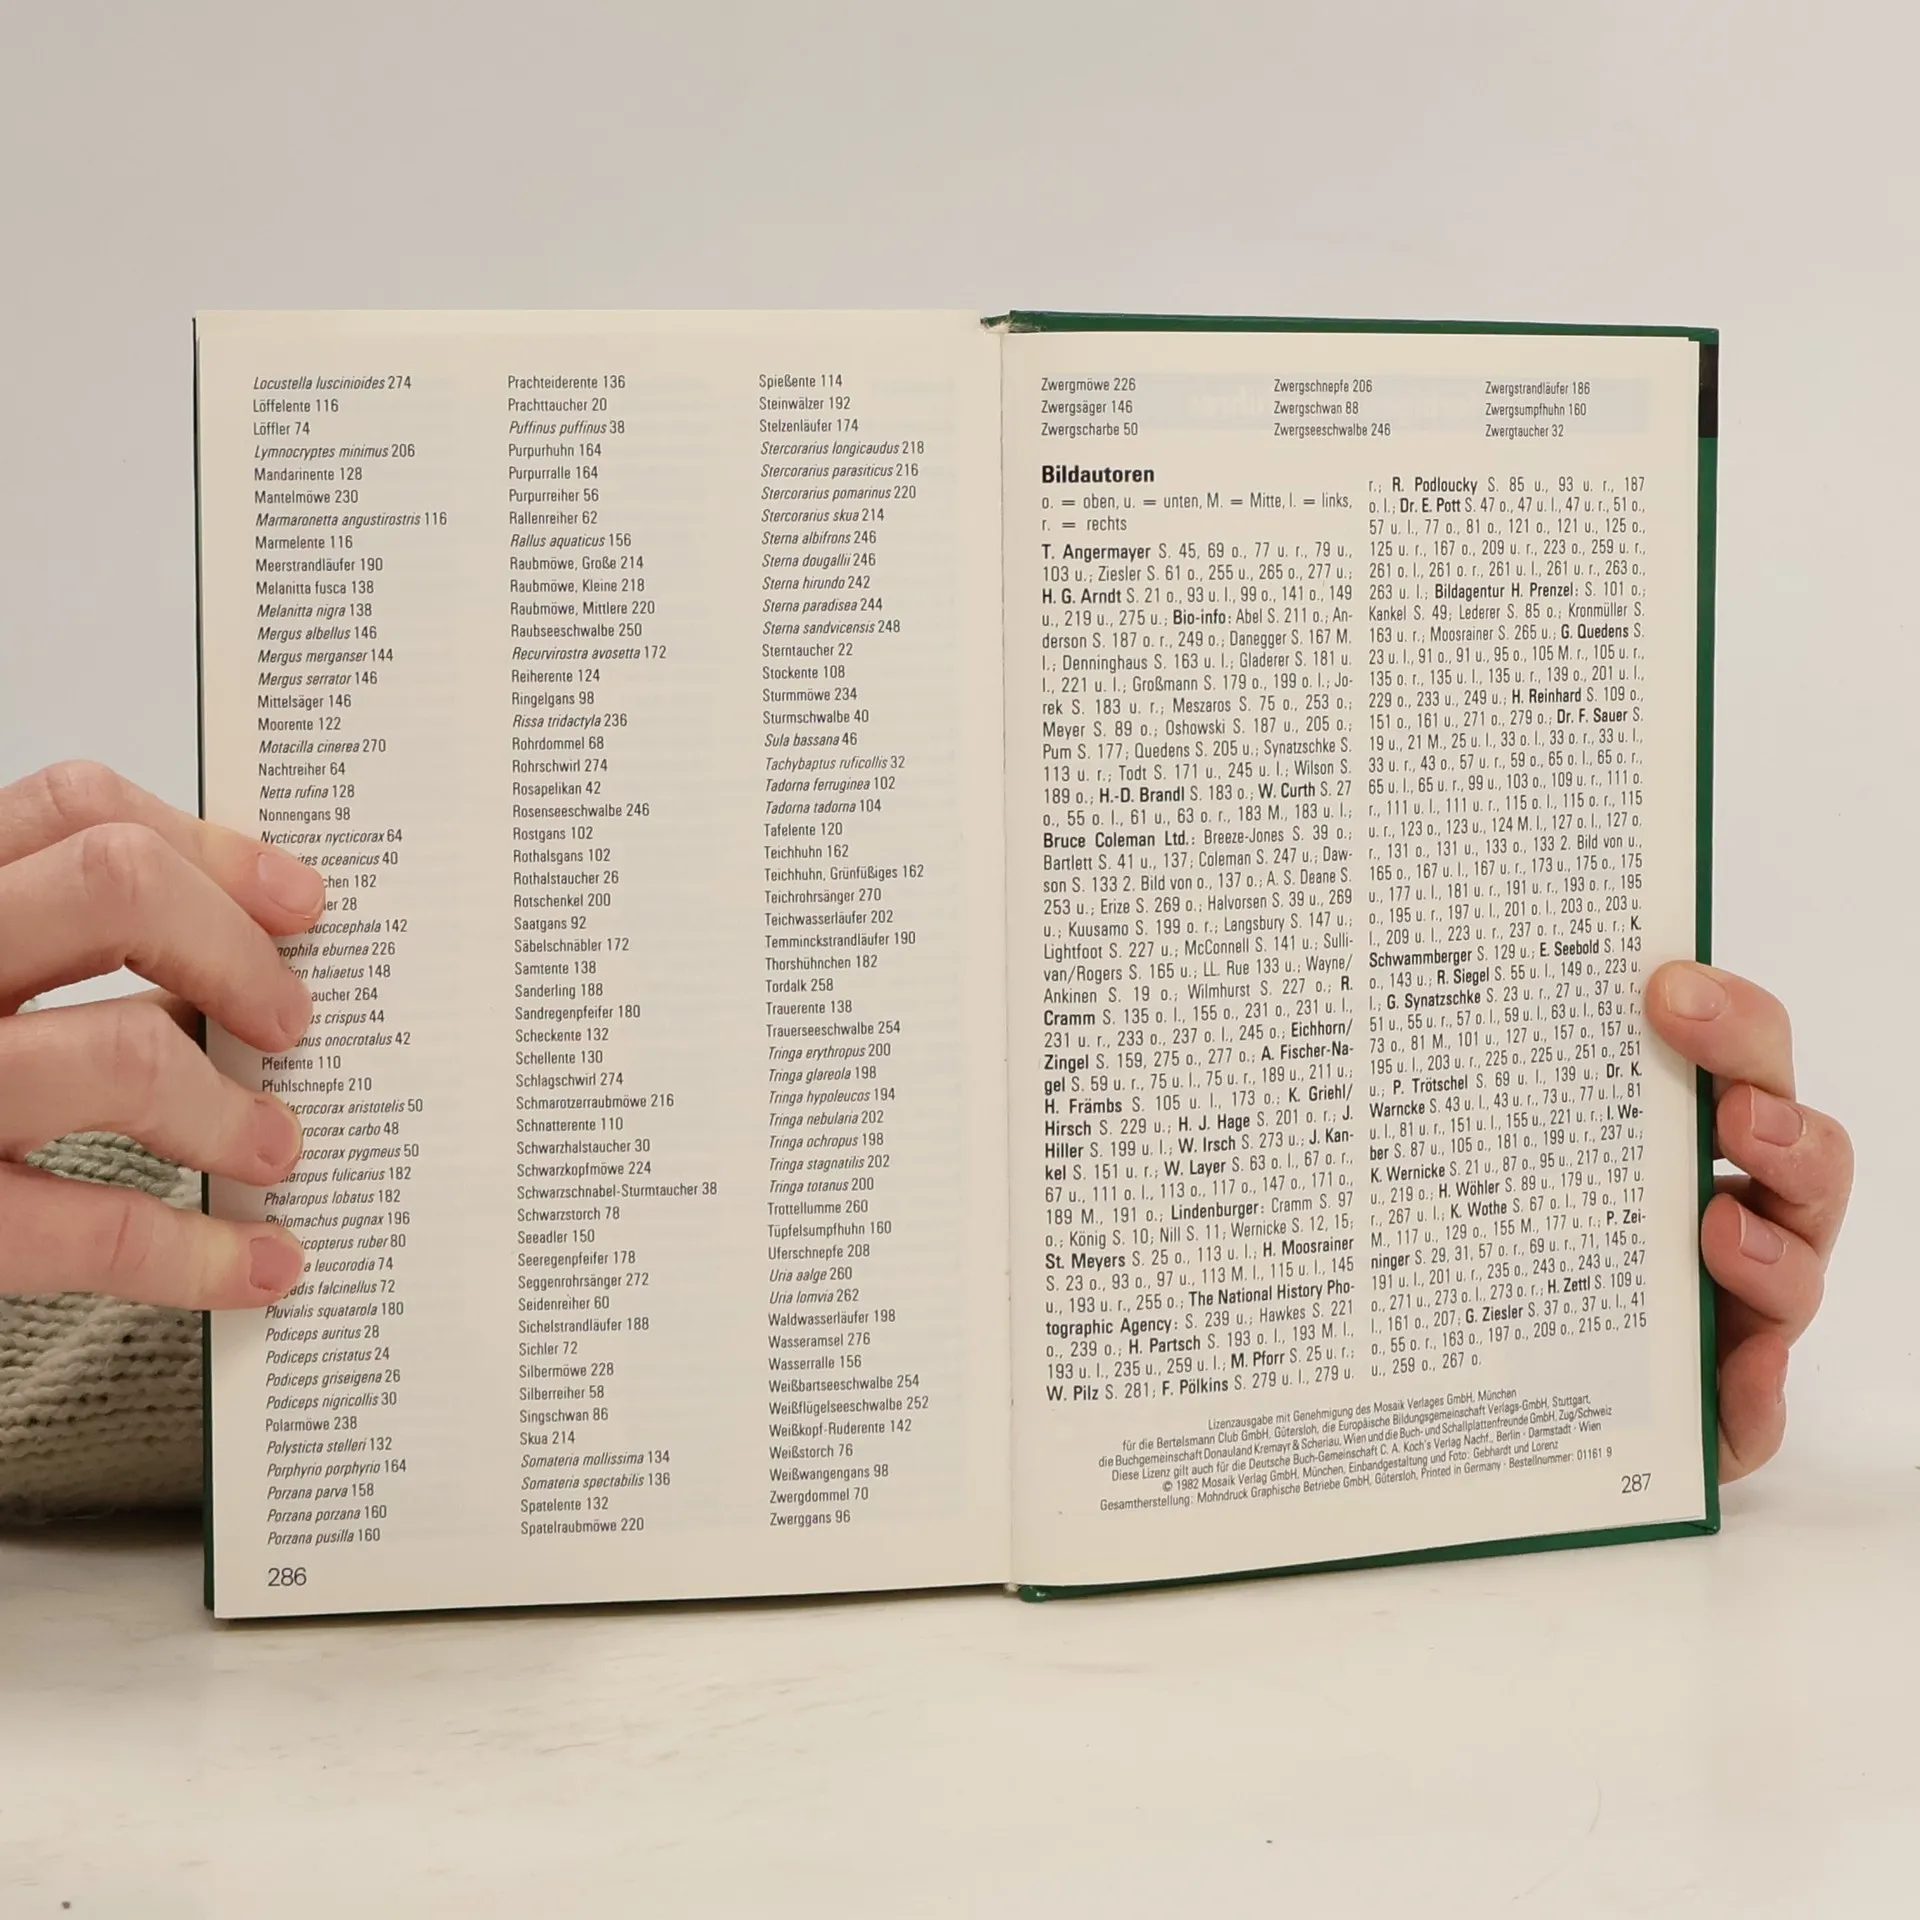 Locustella luscinioides 274
Löffelente 116
Löffler 74
Lymnocryptes minimus 206
Mandarinente 128
Mantelmöwe 230
Marmaronetta angustirostris 116
Marmelente 116
Meerstrandläufer 190
Melanitta fusca 138
Melanitta nigra 138
Mergus albellus 146
Mergus merganser 144
Mergus serrator 146
Mittelsäger 146
Moorente 122
Motacilla cinerea 270
Nachtreiher 64
Netta rufina 128
Nonnengans 98
Nycticorax nycticorax 64
oceanicus 40
182
28
142
eburnea 226
haliaetus 148
264
crispus 44
onocrotalus 42
Pfeifente 110
Pfuhlschnepfe 210
aristotelis 50
carbo 48
pygmeus 50
fulicarius 182
Phalaropus lobatus 182
Philomachus pugnax 196
ruber 80
leucorodia 74
falcinellus 72
Pluvialis squatarola 180
Podiceps auritus 28
Podiceps cristatus 24
Podiceps griseigena 26
Podiceps nigricollis 30
Polarmöwe 238
Polysticta stelleri 132
Porphyrio porphyrio 164
Porzana parva 158
Porzana porzana 160
Porzana pusilla 160
Prachteiderente 136
Prachttaucher 20
Puffinus puffinus 38
Purpurhuhn 164
Purpurralle 164
Purpurreiher 56
Rallenreiher 62
Rallus aquaticus 156
Raubmöwe, Große 214
Raubmöwe, Kleine 218
Raubmöwe, Mittlere 220
Raubseeschwalbe 250
Recurvirostra avosetta 172
Reiherente 124
Ringelgans 98
Rissa tridactyla 236
Rohrdommel 68
Rohrschwirl 274
Rosapelikan 42
Rosenseeschwalbe 246
Rostgans 102
Rothalsgans 102
Rothalstaucher 26
Rotschenkel 200
Saatgans 92
Säbelschnäbler 172
Samtente 138
Sanderling 188
Sandregenpfeifer 180
Scheckente 132
Schellente 130
Schlagschwirl 274
Schmarotzerraubmöwe 216
Schnatterente 110
Schwarzhalstaucher 30
Schwarzkopfmöwe 224
Schwarzschnabel-Sturmtaucher 38
Schwarzstorch 78
Seeadler 150
Seeregenpfeifer 178
Seggenrohrsänger 272
Seidenreiher 60
Sichelstrandläufer 188
Sichler 72
Silbermöwe 228
Silberreiher 58
Singschwan 86
Skua 214
Somateria mollissima 134
Somateria spectabilis 136
Spatelente 132
Spatelraubmöwe 220
Spießente 114
Steinwälzer 192
Stelzenläufer 174
Stercorarius longicaudus 218
Stercorarius parasiticus 216
Stercorarius pomarinus 220
Stercorarius skua 214
Sterna albifrons 246
Sterna dougallii 246
Sterna hirundo 242
Sterna paradisea 244
Sterna sandvicensis 248
Sterntaucher 22
Stockente 108
Sturmmöwe 234
Sturmschwalbe 40
Sula bassana 46
Tachybaptus ruficollis 32
Tadorna ferruginea 102
Tadorna tadorna 104
Tafelente 120
Teichhuhn 162
Teichhuhn, Grünfüßiges 162
Teichrohrsänger 270
Teichwasserläufer 202
Temminckstrandläufer 190
Thorshühnchen 182
Tordalk 258
Trauerente 138
Trauerseeschwalbe 254
Tringa erythropus 200
Tringa glareola 198
Tringa hypoleucos 194
Tringa nebularia 202
Tringa ochropus 198
Tringa stagnatilis 202
Tringa totanus 200
Trottellumme 260
Tüpfelsumpfhuhn 160
Uferschnepfe 208
Uria aalge 260
Uria lomvia 262
Waldwasserläufer 198
Wasseramsel 276
Wasserralle 156
Weißbartseeschwalbe 254
Weißflügelseeschwalbe 252
Weißkopf-Ruderente 142
Weißstorch 76
Weißwangengans 98
Zwergdommel 70
Zwerggans 96
286
Zwergmöwe 226
Zwergsäger 146
Zwergscharbe 50
Zwergschnepfe 206
Zwergschwan 88
Zwergseeschwalbe 246
Zwergstrandläufer 186
Zwergsumpfhuhn 160
Zwergtaucher 32
Bildautoren
o. = oben, u. = unten, M. = Mitte, l. = links,
r. = rechts
T. Angermayer S. 45, 69 o., 77 u. r., 79 u.,
103 u.; Ziesler S. 61 o., 255 u., 265 o., 277 u.;
H. G. Arndt S. 21 o., 93 u. l., 99 o., 141 o., 149
u., 219 u., 275 u.; Bio-info: Abel S. 211 o.; An-
derson S. 187 o. r., 249 o.; Danegger S. 167 M.
l.; Denninghaus S. 163 u. l.; Gladerer S. 181 u.
l., 221 u. l.; Großmann S. 179 o., 199 o. l.; Jo-
rek S. 183 u. r.; Meszaros S. 75 o., 253 o.;
Meyer S. 89 o.; Oshowski S. 187 u., 205 o.;
Pum S. 177; Quedens S. 205 u.; Synatzschke S.
113 u. r.; Todt S. 171 u., 245 u. l.; Wilson S.
189 o.; H.-D. Brandl S. 183 o.; W. Curth S. 27
o., 55 o. l., 61 u., 63 o. r., 183 M., 183 u. l.;
Bruce Coleman Ltd.: Breeze-Jones S. 39 o.;
Bartlett S. 41 u., 137; Coleman S. 247 u.; Daw-
son S. 133 2. Bild von o., 137 o.; A. S. Deane S.
253 u.; Erize S. 269 o.; Halvorsen S. 39 u., 269
u.; Kuusamo S. 199 o. r.; Langsbury S. 147 u.;
Lightfoot S. 227 u.; McConnell S. 141 u.; Sulli-
van/Rogers S. 165 u.; LL. Rue 133 u.; Wayne/
Ankinen S. 19 o.; Wilmhurst S. 227 o.; R.
Cramm S. 135 o. l., 155 o., 231 o., 231 u. l.,
231 u. r., 233 o., 237 o. l., 245 o.; Eichhorn/
Zingel S. 159, 275 o., 277 o.; A. Fischer-Na-
gel S. 59 u. r., 75 u. l., 75 u. r., 189 u., 211 u.;
H. Främbs S. 105 u. l., 173 o.; K. Griehl/
Hirsch S. 229 u.; H. J. Hage S. 201 o. r.; J.
Hiller S. 199 u. l.; W. Irsch S. 273 u.; J. Kan-
kel S. 151 u. r.; W. Layer S. 63 o. l., 67 o. r.,
67 u., 111 o. l., 113 o., 117 o., 147 o., 171 o.,
189 M., 191 o.; Lindenburger: Cramm S. 97
o.; König S. 10; Nill S. 11; Wernicke S. 12, 15;
St. Meyers S. 25 o., 113 u. l.; H. Moosrainer
S. 23 o., 93 o., 97 u., 113 M. l., 115 u. l., 145
u., 193 u. r., 255 o.; The National History Pho-
tographic Agency: S. 239 u.; Hawkes S. 221
o., 239 o.; H. Partsch S. 193 o. l., 193 M. l.,
193 u. l., 235 u., 259 u. l.; M. Pforr S. 25 u. r.;
W. Pilz S. 281; F. Pölkins S. 279 u. l., 279 u.
r.; R. Podloucky S. 85 u., 93 u. r., 187
o. l.; Dr. E. Pott S. 47 o., 47 u. l., 47 u. r., 51 o.,
57 u. l., 77 o., 81 o., 121 o., 121 u., 125 o.,
125 u. r., 167 o., 209 u. r., 223 o., 259 u. r.,
261 o. l., 261 o. r., 261 u. l., 261 u. r., 263 o.,
263 u. l.; Bildagentur H. Prenzel: S. 101 o.;
Kankel S. 49; Lederer S. 85 o.; Kronmüller S.
163 u. r.; Moosrainer S. 265 u.; G. Quedens S.
23 u. l., 91 o., 91 u., 95 o., 105 M. r., 105 u. r.,
135 o. r., 135 u. l., 135 u. r., 139 o., 201 u. l.,
229 o., 233 u., 249 u.; H. Reinhard S. 109 o.,
151 o., 161 u., 271 o., 279 o.; Dr. F. Sauer S.
19 u., 21 M., 25 u. l., 33 o. l., 33 o. r., 33 u. l.,
33 u. r., 43 o., 57 u. r., 59 o., 65 o. l., 65 o. r.,
65 u. l., 65 u. r., 99 u., 103 o., 109 u. r., 111 o.
r., 111 u. l., 111 u. r., 115 o. l., 115 o. r., 115
u. r., 123 o., 123 u., 124 M. l., 127 o. l., 127 o.
r., 131 o., 131 u., 133 o., 133 2. Bild von u.,
165 o., 167 u. l., 167 u. r., 173 u., 175 o., 175
u., 177 u. l., 181 u. r., 191 u. r., 193 o. r., 195
o., 195 u. r., 197 u. l., 201 o. l., 203 o., 203 u.
l., 209 u. l., 223 u. r., 237 o. r., 245 u. r.; K.
Schwammberger S. 129 u.; E. Seebold S. 143
o., 143 u.; R. Siegel S. 55 u. l., 149 o., 223 u.
l.; G. Synatzschke S. 23 u. r., 27 u., 37 u. r.,
51 u., 55 u. r., 57 o. l., 59 u. l., 63 u. l., 63 u. r.,
73 o., 81 M., 101 u., 127 u., 157 o., 157 u.,
195 u. l., 203 u. r., 225 o., 225 u., 251 o., 251
u.; P. Trötschel S. 69 u. l., 139 u.; Dr. K.
Warncke S. 43 u. l., 43 u. r., 73 u., 77 u. l., 81
u. l., 81 u. r., 151 u. l., 155 u., 221 u. r.; I. We-
ber S. 87 u., 105 o., 181 o., 199 u. r., 237 u.;
K. Wernicke S. 21 u., 87 o., 95 u., 217 o., 217
u., 219 o.; H. Wöhler S. 89 u., 179 u., 197 u.
r., 267 u. l.; K. Wothe S. 67 o. l., 79 o., 117
M., 117 u., 129 o., 155 M., 177 u. r.; P. Zei-
ninger S. 29, 31, 57 o. r., 69 u. r., 71, 145 o.,
191 u. l., 201 u. r., 235 o., 243 o., 243 u., 247
o., 271 u., 273 o. l., 273 o. r.; H. Zettl S. 109 u.
l., 161 o., 207; G. Ziesler S. 37 o., 37 u. l., 41
o., 55 o. r., 163 o., 197 o., 209 o., 215 o., 215
u., 259 o., 267 o.
Lizenzausgabe mit Genehmigung des Mosaik Verlages GmbH, München
für die Bertelsmann Club GmbH, Gütersloh, die Europäische Bildungsgemeinschaft Verlags-GmbH, Stuttgart,
die Buchgemeinschaft Donauland Kremayr & Scheriau, Wien und die Buch- und Schallplattenfreunde GmbH, Zug/Schweiz
Diese Lizenz gilt auch für die Deutsche Buch-Gemeinschaft C. A. Koch's Verlag Nachf., Berlin · Darmstadt · Wien
© 1982 Mosaik Verlag GmbH, München, Einbandgestaltung und Foto: Gebhardt und Lorenz
Gesamtherstellung: Mohndruck Graphische Betriebe GmbH, Gütersloh, Printed in Germany · Bestellnummer: 01161 9
287